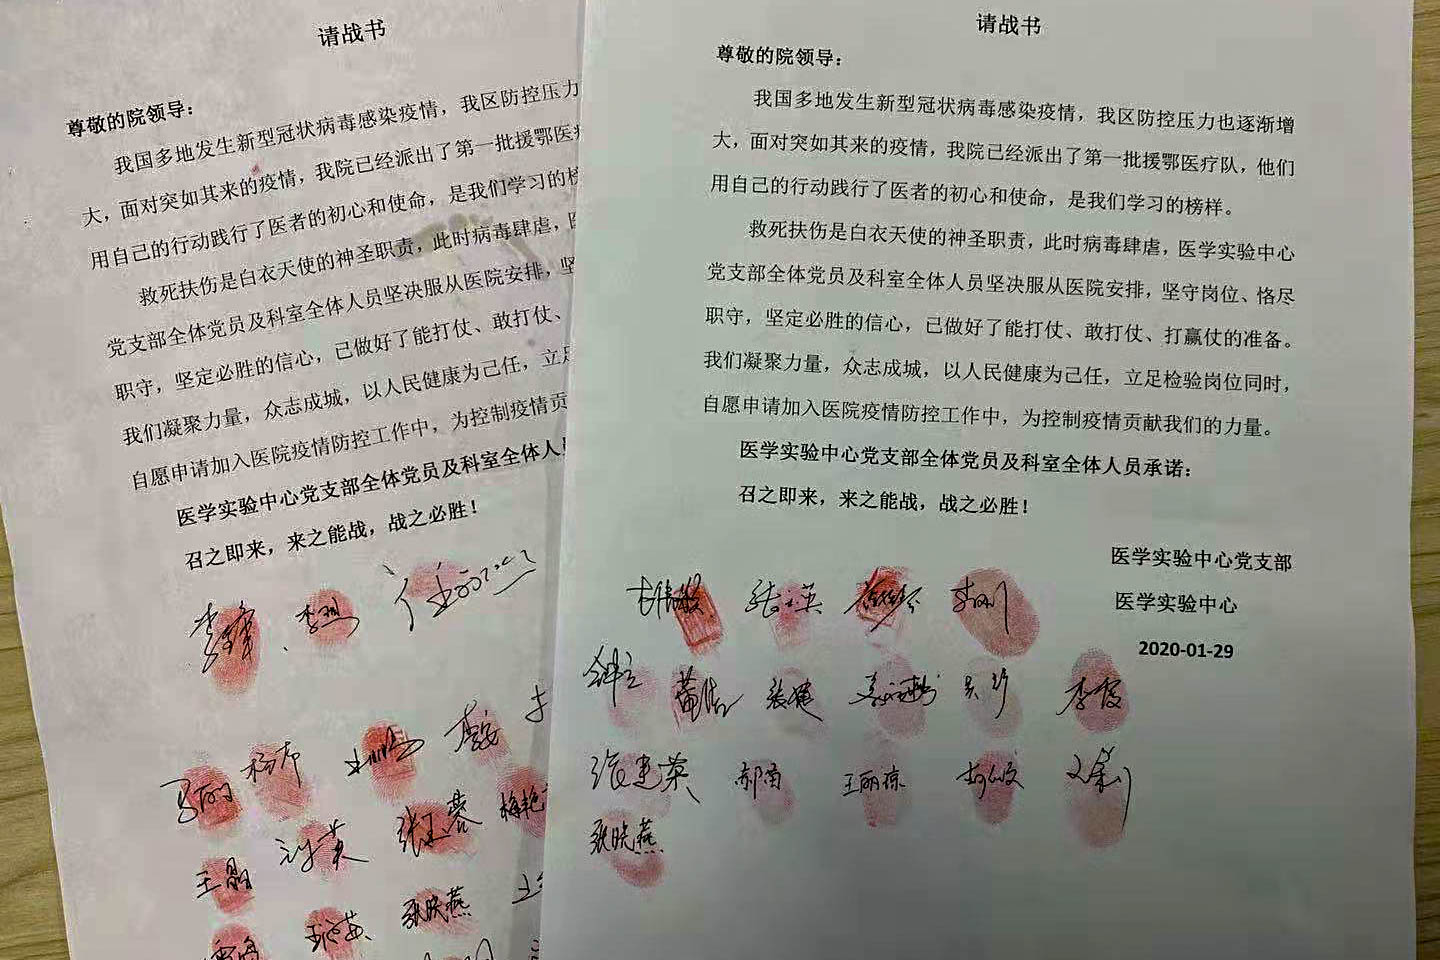 请战书
尊敬的院领导：
我国多地发生新型冠状病毒感染疫情，我区防控压力
大，面对突如其来的疫情，我院已经派出了第一批援鄂医疗
用自己的行动践行了医者的初心和使命，是我们学习的榜
救死扶伤是白衣天使的神圣职责，此时病毒肆虐，医
党支部全体党员及科室全体人员坚决服从医院安排，坚
职守，坚定必胜的信心，已做好了能打仗、敢打仗、
我们凝聚力量，众志成城，以人民健康为己任，立足
自愿申请加入医院疫情防控工作中，为控制疫情贡
医学实验中心党支部全体党员及科室全体人
召之即来，来之能战，战之必胜！
马丽 杨布
王晶 张玉蓉 梅艳
张晓燕
请战书
尊敬的院领导：
我国多地发生新型冠状病毒感染疫情，我区防控压力也逐渐增
大，面对突如其来的疫情，我院已经派出了第一批援鄂医疗队，他们
用自己的行动践行了医者的初心和使命，是我们学习的榜样。
救死扶伤是白衣天使的神圣职责，此时病毒肆虐，医学实验中心
党支部全体党员及科室全体人员坚决服从医院安排，坚守岗位、恪尽
职守，坚定必胜的信心，已做好了能打仗、敢打仗、打赢仗的准备。
我们凝聚力量，众志成城，以人民健康为己任，立足检验岗位同时，
自愿申请加入医院疫情防控工作中，为控制疫情贡献我们的力量。
医学实验中心党支部全体党员及科室全体人员承诺：
召之即来，来之能战，战之必胜！
医学实验中心党支部
医学实验中心
2020-01-29
李刚
张健 李霞
张建英 郝苗 王丽琼
张晓燕